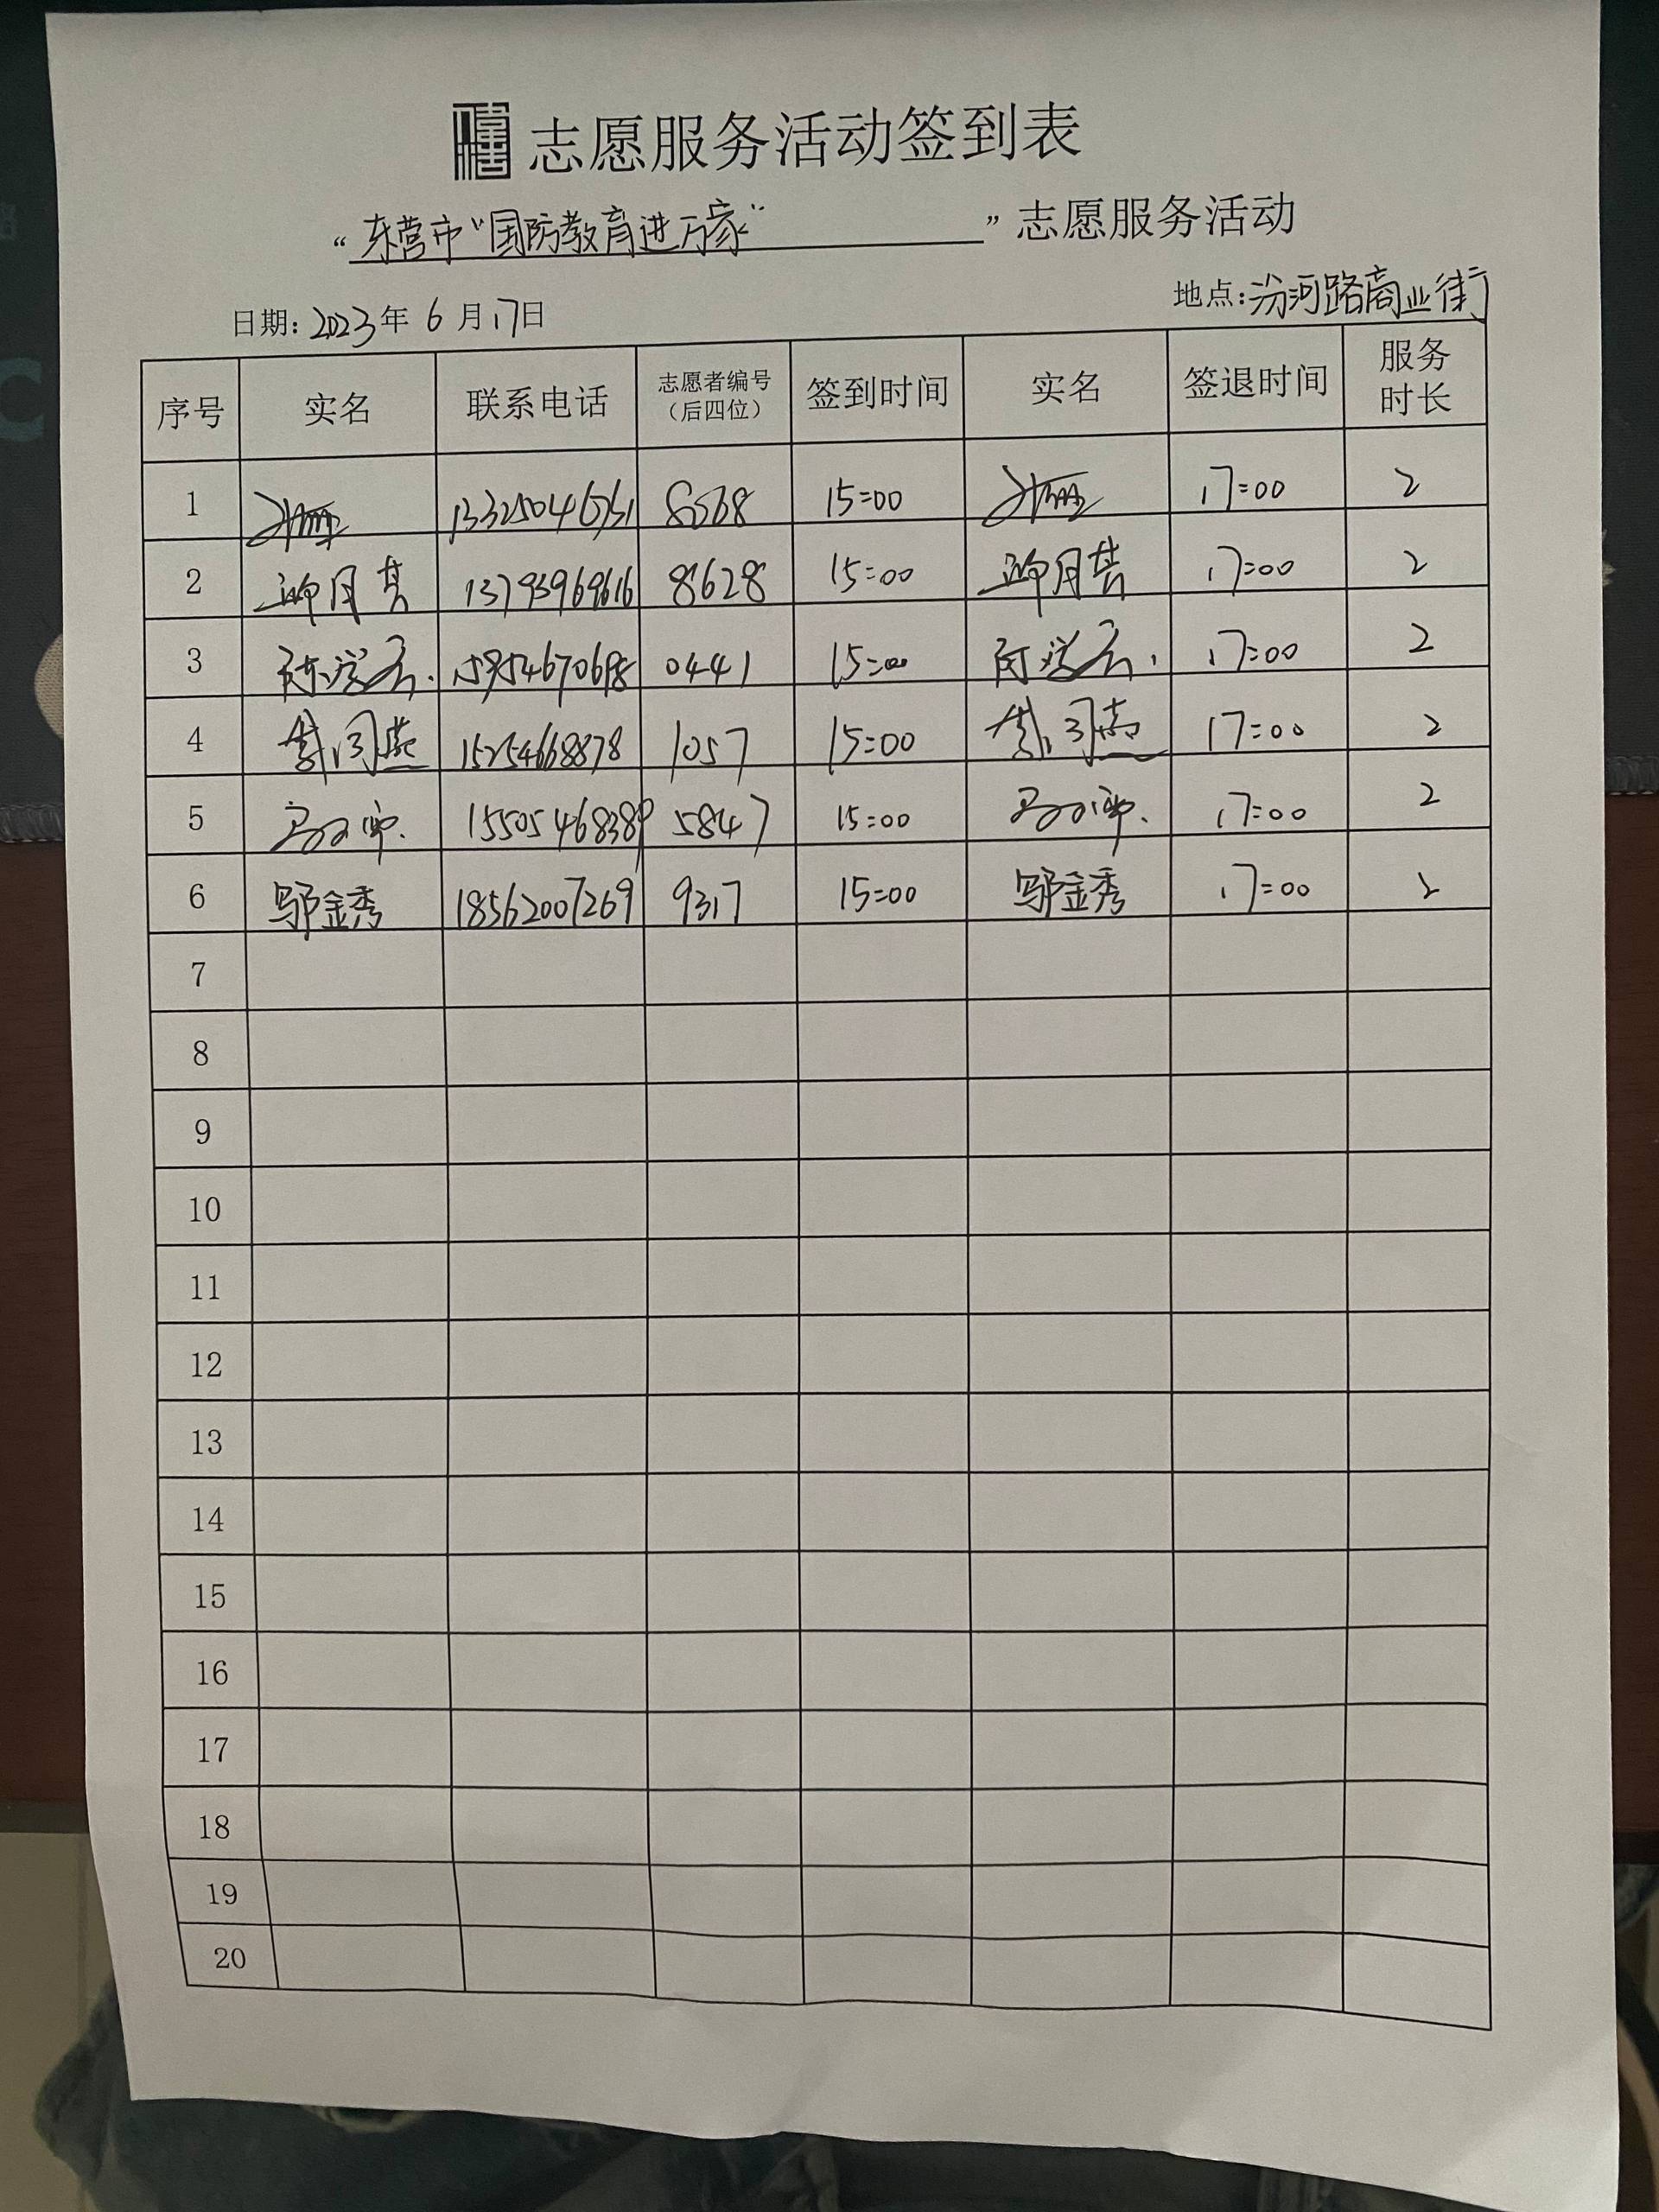 志愿服务活动签到表
“东营市“国防教育进万家” ”志愿服务活动
日期：2023年 6 月17日 地点：汾河路商业街
序号 实名 联系电话 志愿者编号（后四位） 签到时间 实名 签退时间 服务时长
1 15:00 17:00 2
2 13793969616 8628 15:00 17:00 2
3 15954670698 0441 15:00 17:00 2
4 15254668878 1057 15:00 17:00 2
5 15505468389 5847 15:00 17:00 2
6 邬金秀 18562007269 9317 15:00 邬金秀 17:00 2
7
8
9
10
11
12
13
14
15
16
17
18
19
20